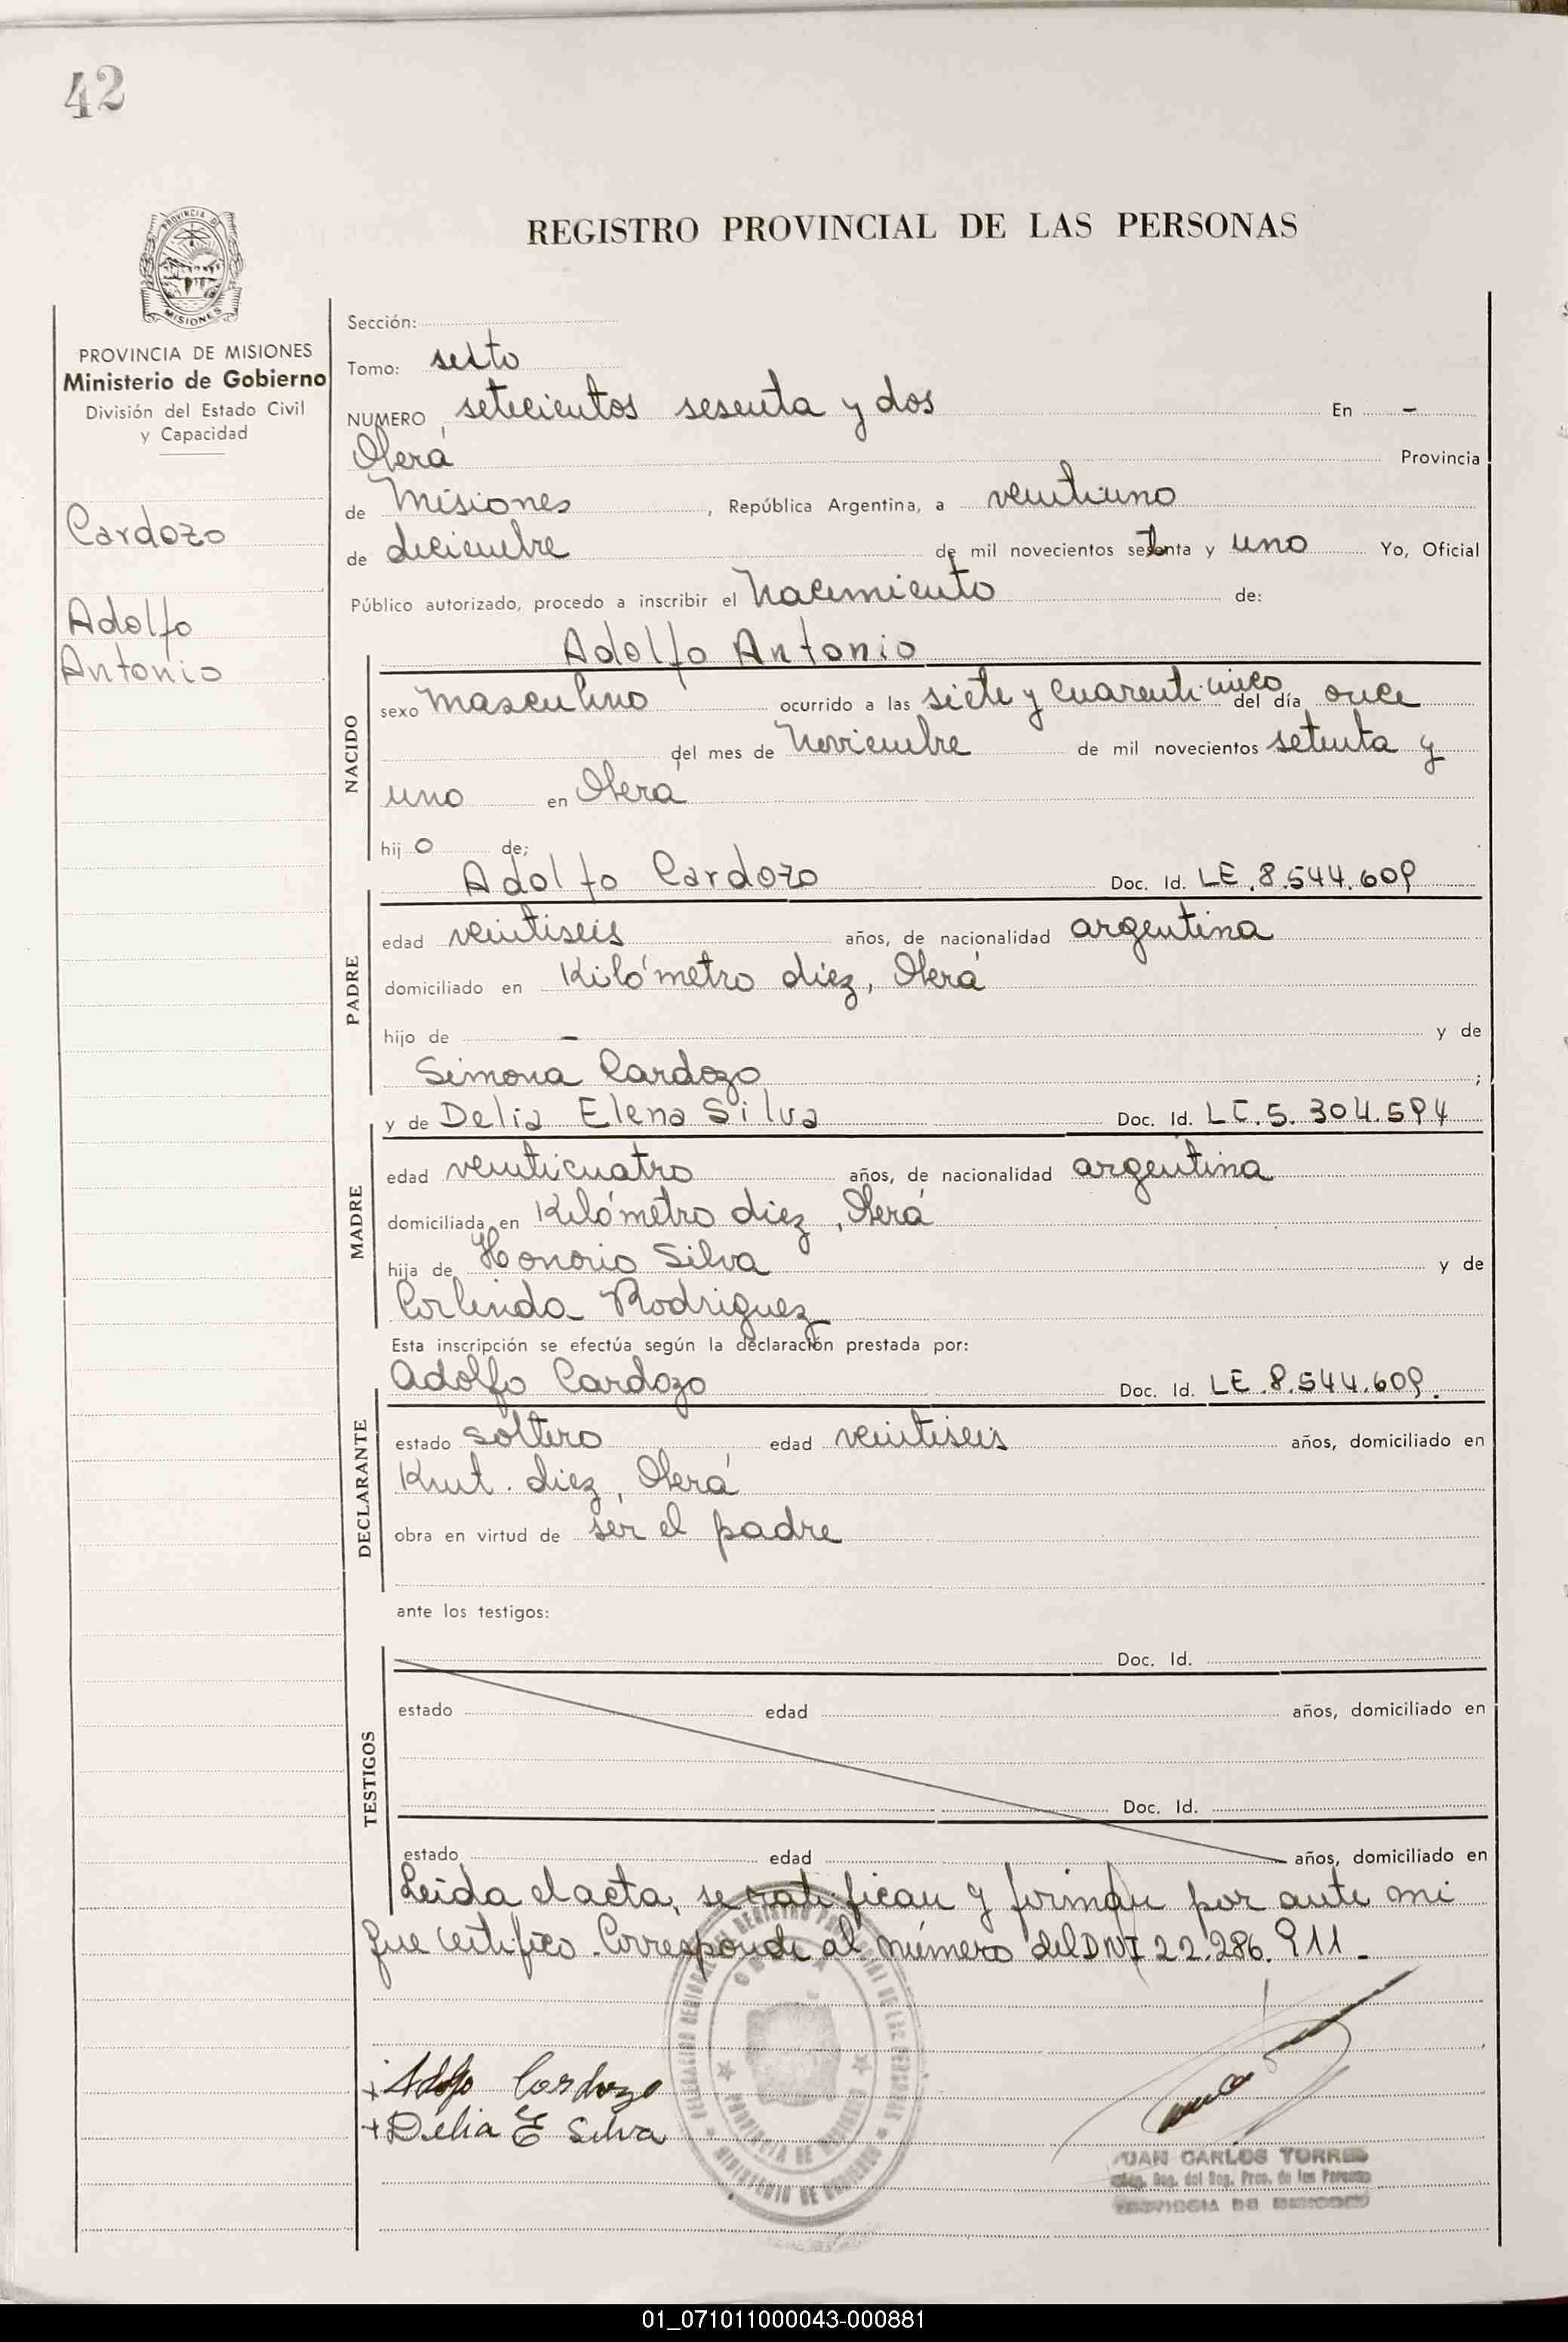 42
REGISTRO PROVINCIAL DE LAS PERSONAS
PROVINCIA DE
MISIONES
PROVINCIA DE MISIONES
Ministerio de Gobierno
División del Estado Civil
y Capacidad
Cardozo
Adolfo
Antonio
Sección:
Tomo: sexto
NUMERO setecientos sesenta y dos En -
Oberá Provincia
de Misiones, República Argentina, a veintiuno
de diciembre de mil novecientos setenta y uno Yo, Oficial
Público autorizado, procedo a inscribir el Nacimiento de:
Adolfo Antonio
NACIDO
sexo masculino ocurrido a las siete y cuarenticinco del día once
del mes de Noviembre de mil novecientos setenta y
uno en Oberá
hijo de;
Adolfo Cardozo Doc. Id. LE.8.544.609
PADRE
edad veintiseis años, de nacionalidad argentina
domiciliado en Kilómetro diez, Oberá
hijo de - y de
Simona Cardozo;
y de Delia Elena Silva Doc. Id. LC.5.304.594
MADRE
edad veinticuatro años, de nacionalidad argentina
domiciliada en Kilómetro diez, Oberá
hija de Honorio Silva y de
Corlinda Rodriguez
Esta inscripción se efectúa según la declaración prestada por:
Adolfo Cardozo Doc. Id. LE.8.544.609.
DECLARANTE
estado soltero edad veintiseis años, domiciliado en
Kmt. diez, Oberá
obra en virtud de ser el padre
ante los testigos:
Doc. Id.
TESTIGOS
estado edad años, domiciliado en
Doc. Id.
estado edad años, domiciliado en
Leida el acta, se ratifican y firman por ante mi
que certifico. Corresponde al número del DNI 22.286.911.-
Adolfo Cardozo
Delia E Silva
PROVINCIA DE MISIONES
MINISTERIO DE GOBIERNO
JUAN CARLOS TORRES
01_071011000043-000881